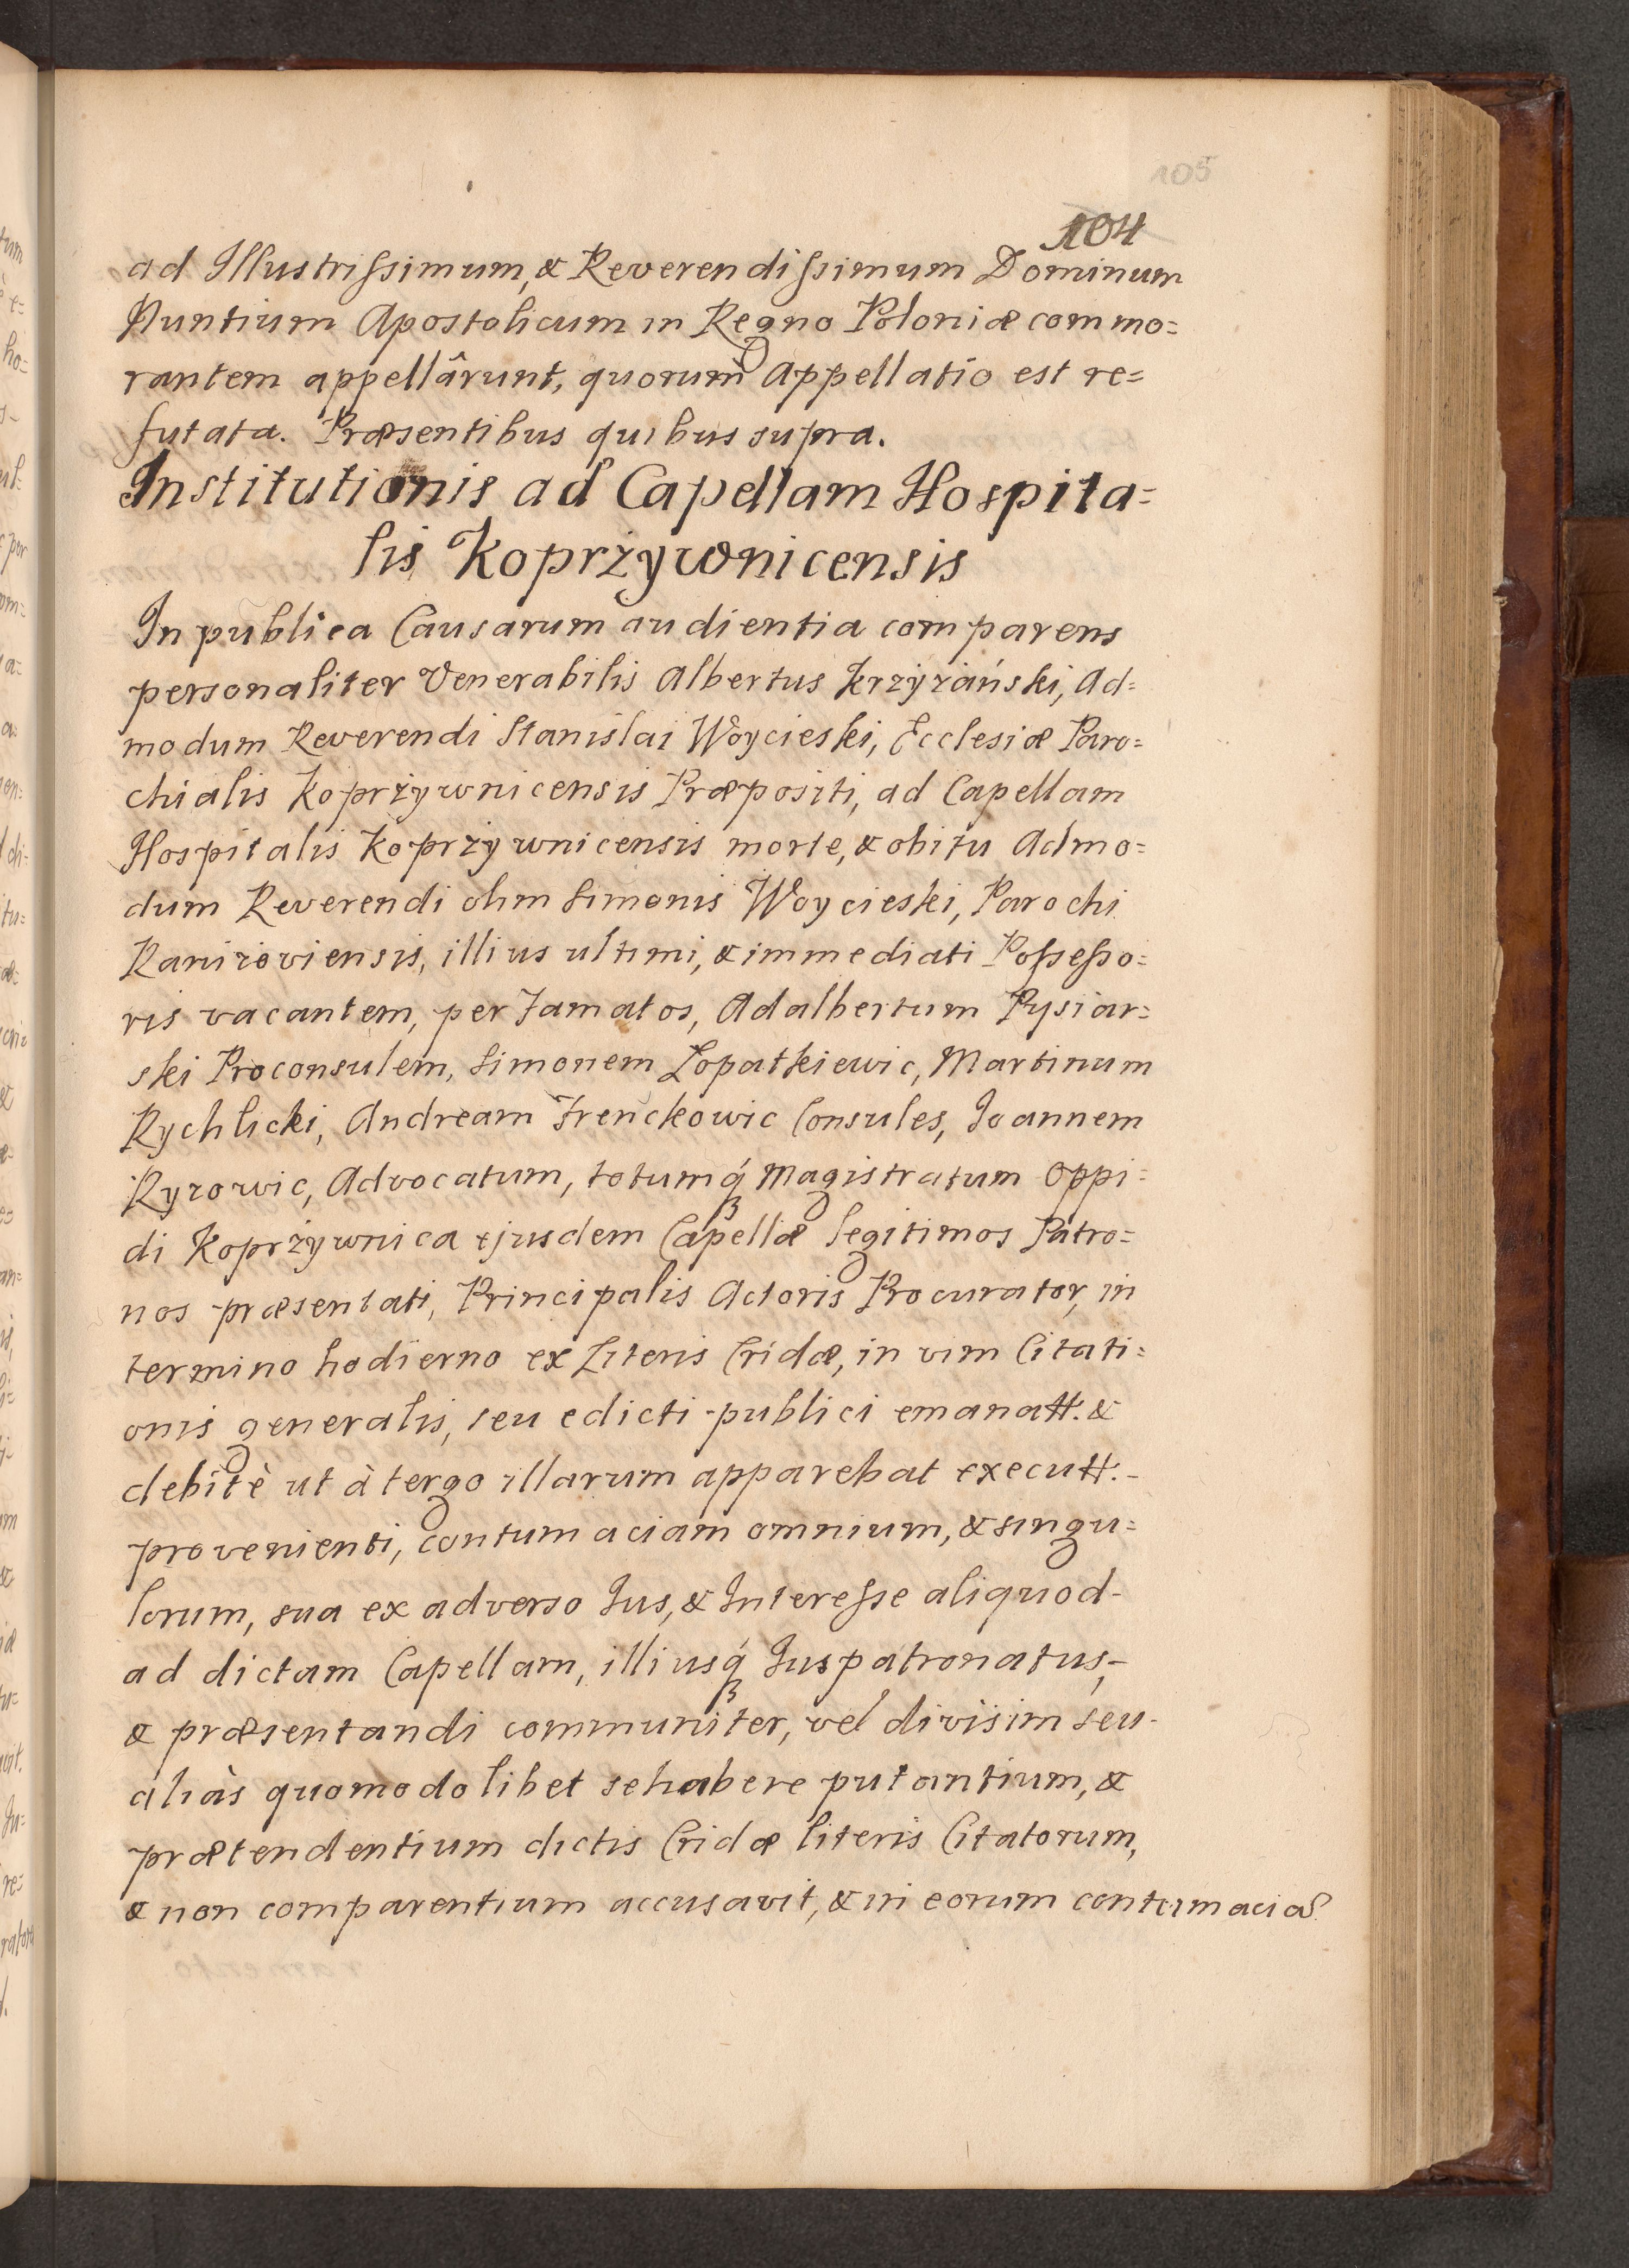 105
104
ad Illustrissimum, & Reverendissimum Dominum
Nuntium Apostolicum in Regno Poloniæ commo=
rantem appellârunt, quorum Appellatio est re=
futata. Præsentibus quibus supra.
Institutionis ad Capellam Hospita=
lis Koprżywnicensis
In publica Causarum audientia comparens
personaliter Venerabilis Albertus Krzyżański, Ad=
modum Reverendi Stanislai Woycieski, Ecclesiæ Paro=
chialis Koprżywnicensis Præpositi, ad Capellam
Hospitalis Koprżywnicensis morte, & obitu Admo=
dum Reverendi olim Simonis Woycieski, Parochi
illius ultimi, & immediati Possesso=
ris vacantem, per Famatos, Adalbertum Pysiar=
ski Proconsulem, Simonem Lopatkiewic, Martinum
Rychlicki, Andream Frenckowic Consules, Joannem
Ryzowic, Advocatum, totumq́ Magistratum Oppi=
di Koprżywnica ejusdem Capellæ legitimos Patro=
nos præsentati, Principalis Actoris Procurator, in
termino hodierno ex Literis Cridæ, in vim Citati=
onis generalis, seu edicti publici emanatt. &
debitè ut à tergo illarum apparebat executt.
provenienti, contumaciam omnium, & singu=
lorum, sua ex adverso Jus, & Interesse aliquod
ad dictam Capellam, illiusq́ Juspatronatus,
& præsentandi communiter, vel divisim seu
aliàs quomodolibet se habere putantium, &
prætendentium dictis Cridæ literis Citatorum,
& non comparentium accusavit, & in eorum contumaciã